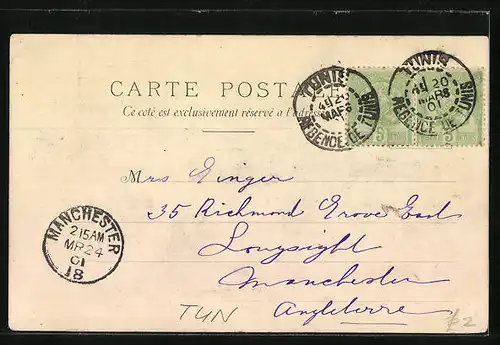 CARTE POSTA
Ce coté est exclusivement réservé à l'adres
TUNIS
4E 20
MARS
01
REGENCE DE TUNIS
TUNIS
20
MARS
01
REGENCE DE TUNIS
5
5
M
Mrs Ginger
35 Richmond Grove East
Longsight
Manchester
Angleterre
MANCHESTER
2 15 AM
MR 24
01
18
TUN